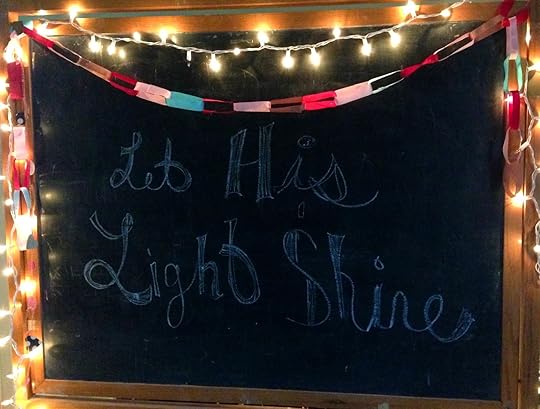 Let His
Light Shine